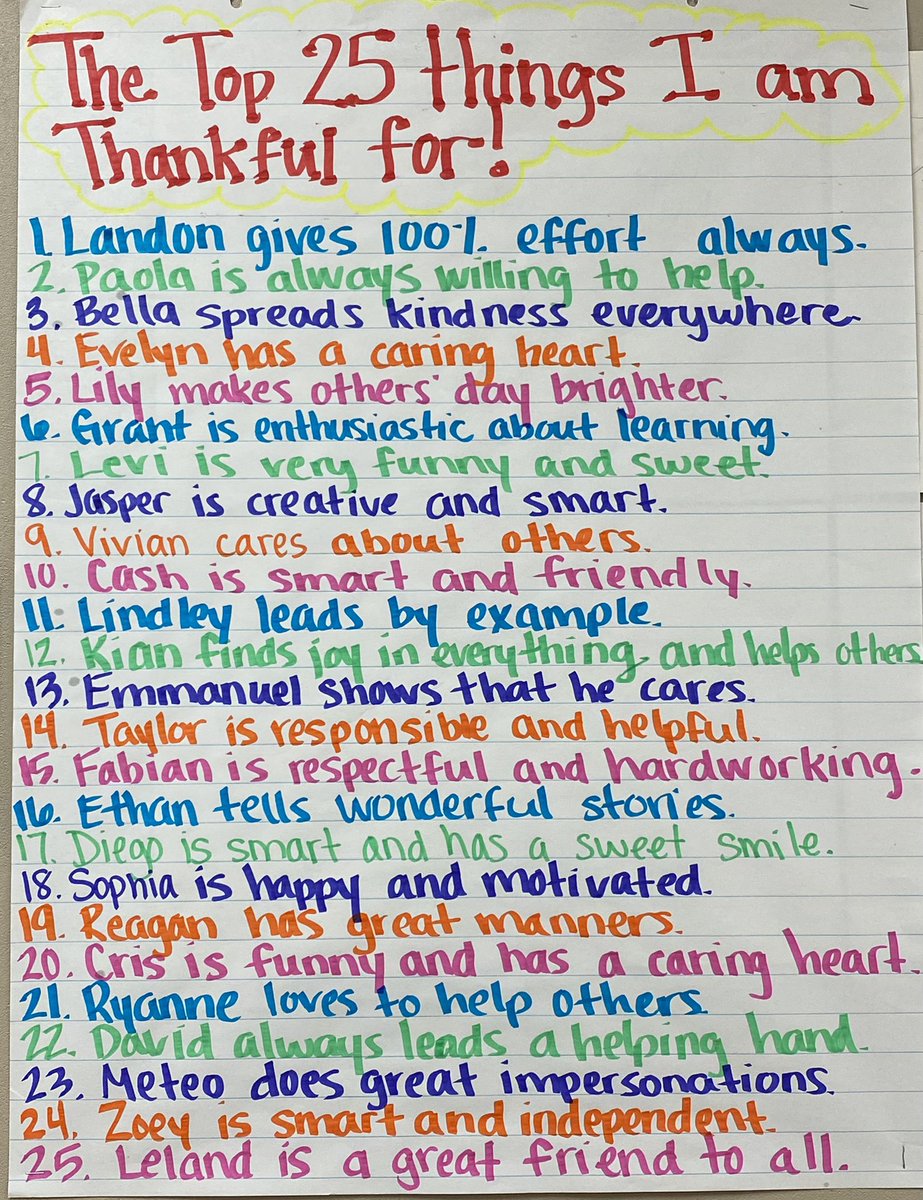 The Top 25 things I am
Thankful for!
1. Landon gives 100% effort always.
2. Paola is always willing to help.
3. Bella spreads kindness everywhere.
4. Evelyn has a caring heart.
5. Lily makes others' day brighter.
6. Grant is enthusiastic about learning.
7. Levi is very funny and sweet.
8. Jasper is creative and smart.
9. Vivian cares about others.
10. Cash is smart and friendly.
11. Lindley leads by example.
12. Kian finds joy in everything and helps others
13. Emmanuel shows that he cares.
14. Taylor is responsible and helpful.
15. Fabian is respectful and hardworking.
16. Ethan tells wonderful stories.
17. Diego is smart and has a sweet smile.
18. Sophia is happy and motivated.
19. Reagan has great manners.
20. Cris is funny and has a caring heart.
21. Ryanne loves to help others.
22. David always leads a helping hand.
23. Meteo does great impersonations.
24. Zoey is smart and independent.
25. Leland is a great friend to all.